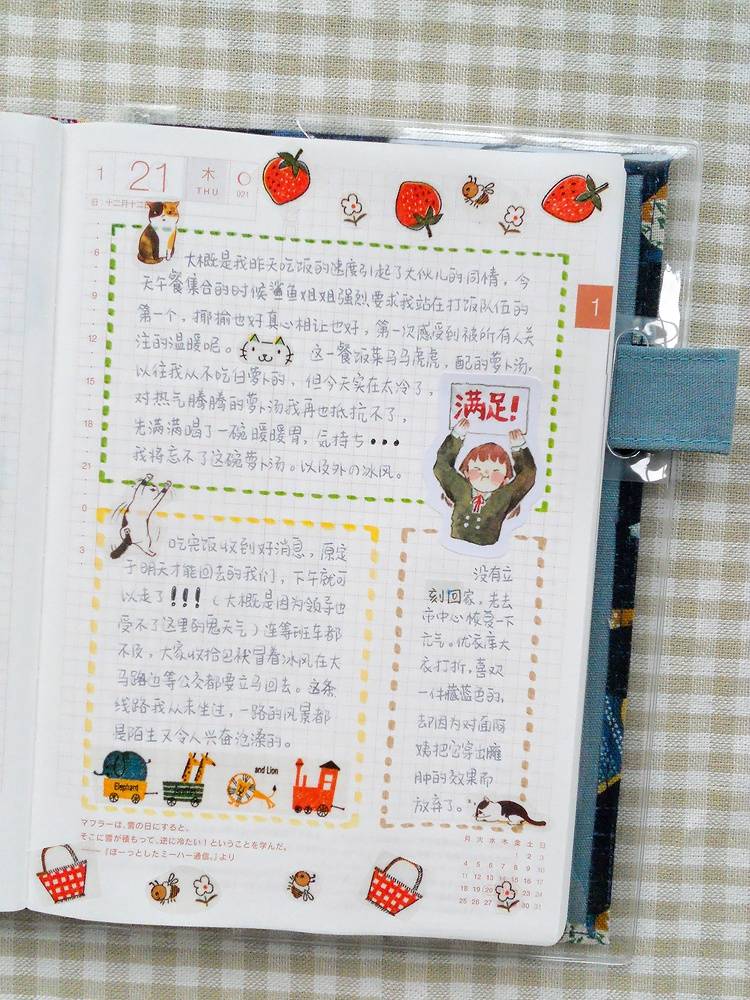 1 21 木 THU 021
日:十二月十二
1
6
大概是我昨天吃饭的速度引起了大伙儿的同情，今
天午餐集合的时候鲨鱼姐姐强烈要求我站在打饭队伍的
9
第一个，揶揄也好真心相让也好，第一次感受到被所有人关
注的温暖呢。 这一餐饭菜马马虎虎，配的萝卜汤，
12
以往我从不吃白萝卜的，但今天实在太冷了，
15
对热气腾腾的萝卜汤我再也抵抗不了，
满足!
18
先满满喝了一碗暖暖胃，気持ち•••
21
我将忘不了这碗萝卜汤。以及外の冰风。
0
3
吃完饭收到好消息，原定
于明天才能回去的我们，下午就可
以走了!!!（大概是因为领导也
受不了这里的鬼天气）连等班车都
不及，大家收拾包袱冒着冰风在大
马路边等公交都要立马回去。这条
线路我从未坐过，一路的风景都
是陌生又令人兴奋沧溟的。
Elephant
and Lion
没有立
刻回家，先去
市中心恢复一下
元气。优衣库大
衣打折，喜欢
一件藏蓝色的，
却因为对面阿
姨把它穿出臃
肿的效果而
放弃了。
マフラーは、雪の日にすると、
そこに雪が積もって、逆に冷たい！ということを学んだ。
――『ほーっとしたミーハー通信。』より
月 火 水 木 金 土 日
1 2 3
4 5 6 7 8 9 10
11 12 13 14 15 16 17
18 19 20 22 23 24
25 26 27 30 31